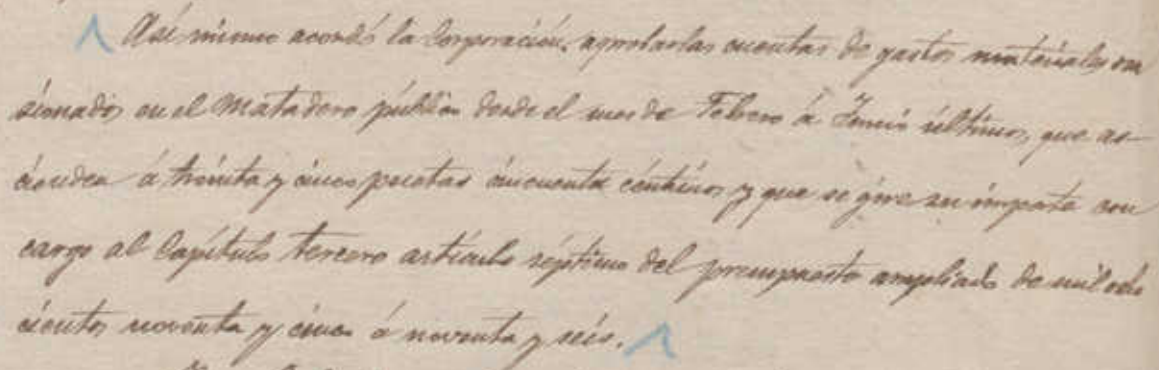 Asi mismo acordó la Corporación, aprobar las cuentas de gastos materiales oca
sionados en el Matadero público desde el mes de Febrero á Junio últimos, que as-
cienden á treinta y cinco pesetas cincuenta céntimos y que se gire su importe con
cargo al Capítulo tercero artículo séptimo del presupuesto ampliado de mil ocho
cientos noventa y cinco á noventa y seis.